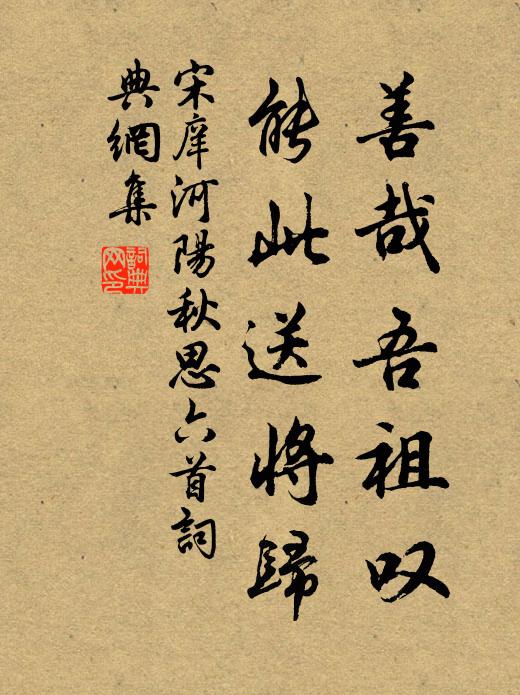 善哉吾祖叹
能此送將歸
宋庠河陽秋思六首詞
典網集
詞典
网印